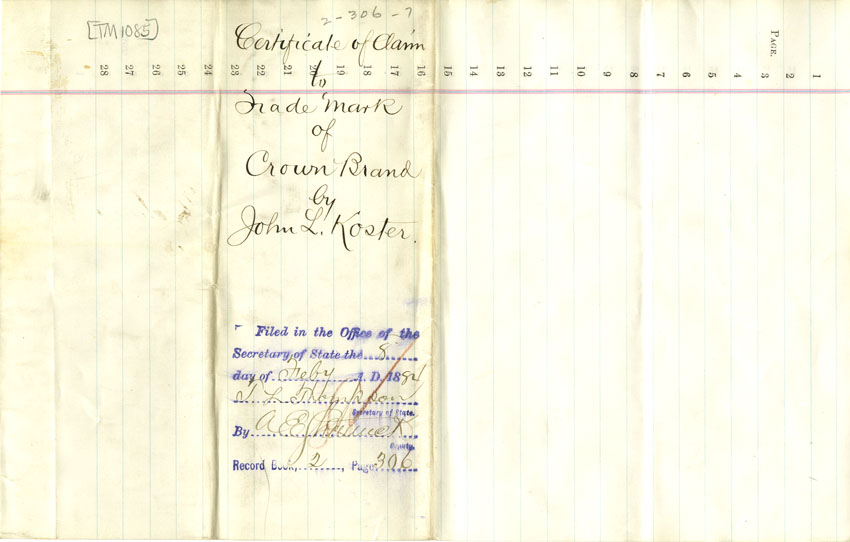 2-306-7
[TM1085]
Certificate of Claim
to
Trade Mark
of
Crown Brand
by
John L. Koster.
PAGE.
28 27 26 25 24 23 22 21 20 19 18 17 16 15 14 13 12 11 10 9 8 7 6 5 4 3 2 1
Filed in the Office of the
Secretary of State the 8
day of Feby A. D. 1884
T L Thompson
Secretary of State.
By A. E.
Deputy.
Record Book, 2, Page 306